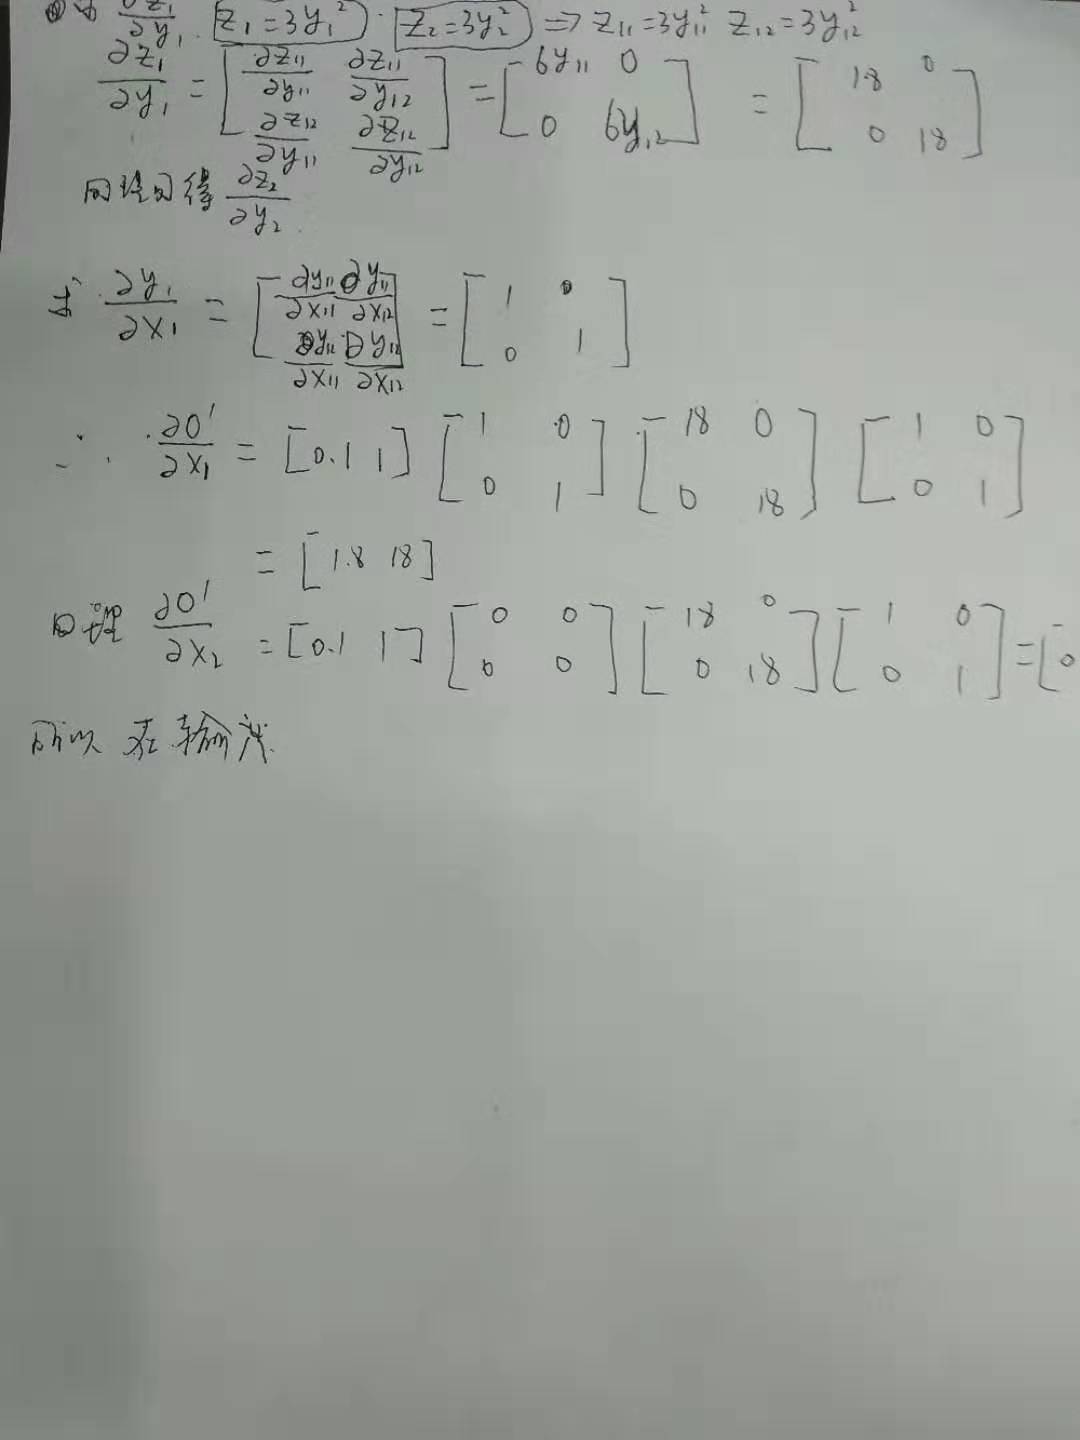 求 ∂z₁/∂y₁ · z₁=3y₁² · z₂=3y₂² ⇒ z₁₁=3y₁₁² z₁₂=3y₁₂²
∂z₁/∂y₁ = [∂z₁₁/∂y₁₁ ∂z₁₁/∂y₁₂; ∂z₁₂/∂y₁₁ ∂z₁₂/∂y₁₂] = [6y₁₁ 0; 0 6y₁₂] = [18 0; 0 18]
同理可得 ∂z₂/∂y₂
求 ∂y₁/∂x₁ = [∂y₁₁/∂x₁₁ ∂y₁₁/∂x₁₂; ∂y₁₂/∂x₁₁ ∂y₁₂/∂x₁₂] = [1 0; 0 1]
∴ ∂O'/∂x₁ = [0.1 1] [1 0; 0 1] [18 0; 0 18] [1 0; 0 1]
= [1.8 18]
∂O'/∂x₂ = [0.1 1] [0 0; 0 0] [18 0; 0 18] [1 0; 0 1] = [0
所以 在输